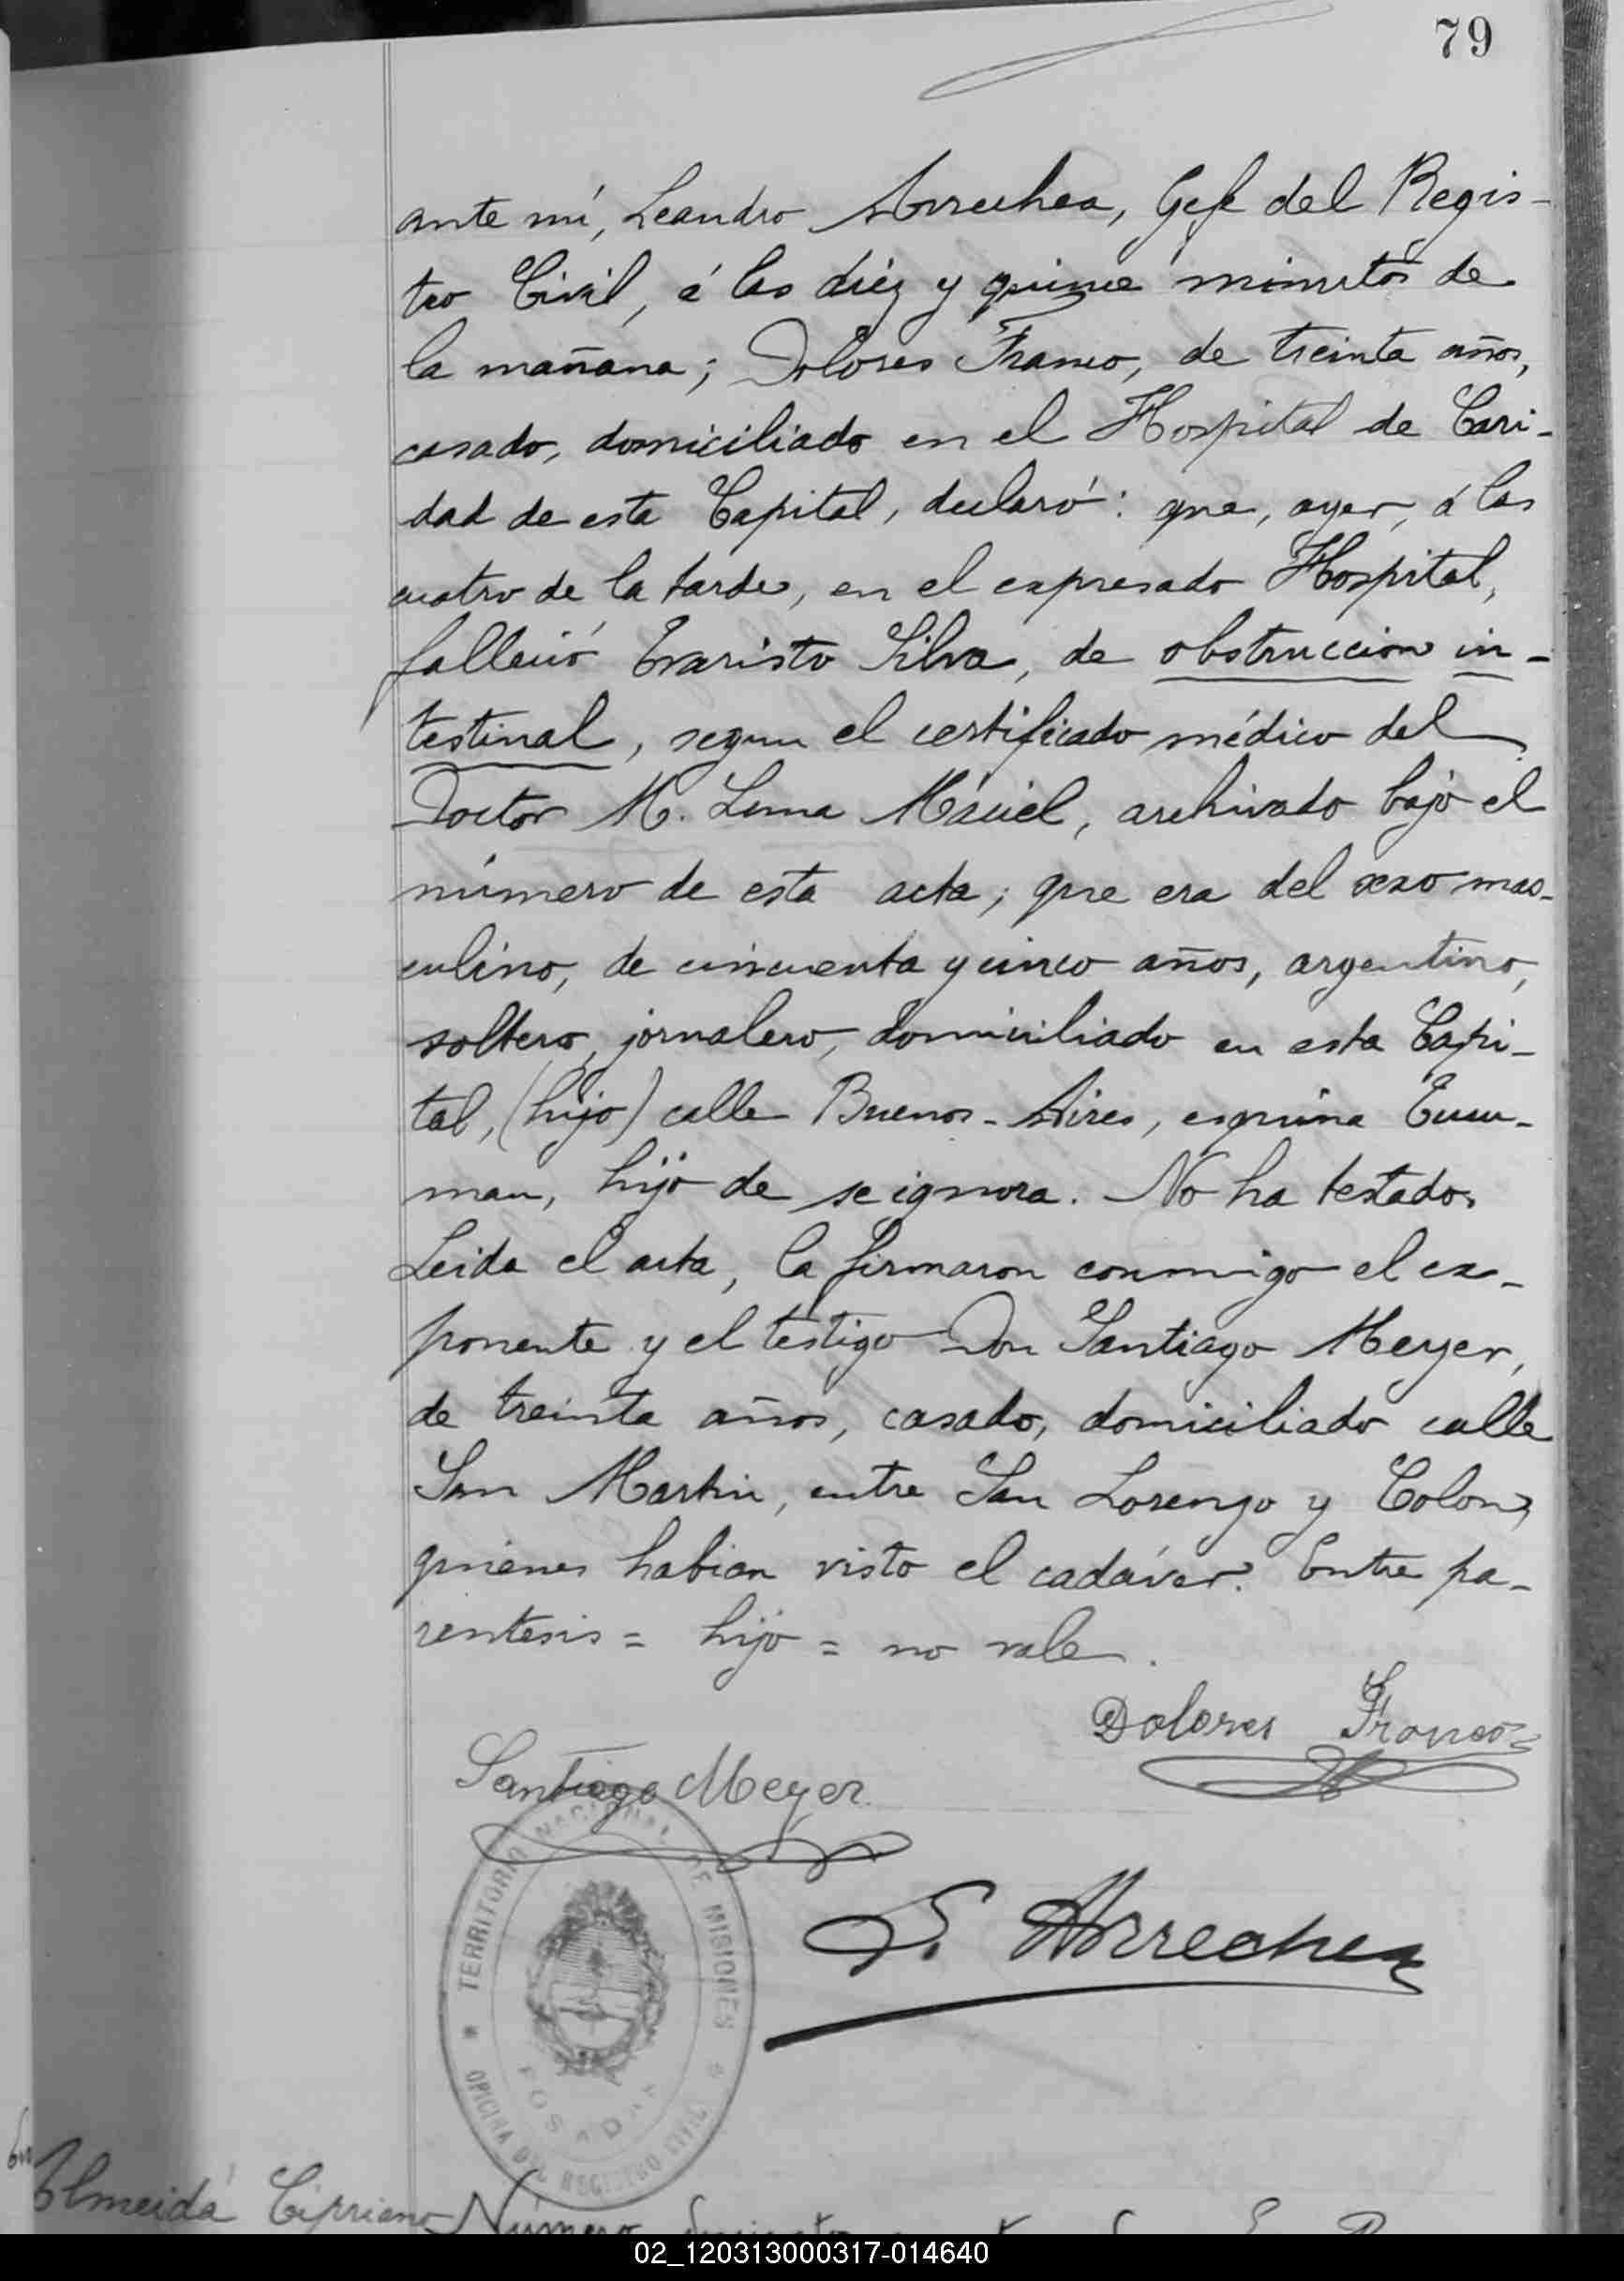 79
ante mí, Leandro Arrechea, Gefe del Regis-
tro Civil, á las diéz y quince minutos de
la mañana; Dolores Franco, de treinta años,
casado, domiciliado en el Hospital de Cari-
dad de esta Capital, declaró: que, ayer, á las
cuatro de la tarde, en el expresado Hospital,
falleció Evaristo Silva, de obstruccion in-
testinal, segun el certificado médico del
Doctor M. Luna Maciel, archivado bajo el
número de esta acta; que era del sexo mas-
culino, de cincuenta y cinco años, argentino,
soltero, jornalero, domiciliado en esta Capi-
tal, (hijo) calle Buenos-Aires, esquina Tucu-
man, hijo de se ignora. No ha testado.
Leida el acta, la firmaron conmigo el ex-
ponente y el testigo Don Santiago Meyer,
de treinta años, casado, domiciliado calle
San Martin, entre San Lorenzo y Colon,
quienes habian visto el cadáver. Entre pa-
rentesis = hijo = no vale.
Dolores Franco
Santiago Meyer
L. Arrechea
TERRITORIO NACIONAL DE MISIONES
POSADAS
OFICINA DEL REGISTRO CIVIL
Almeida Cipriano Número
02_120313000317-014640